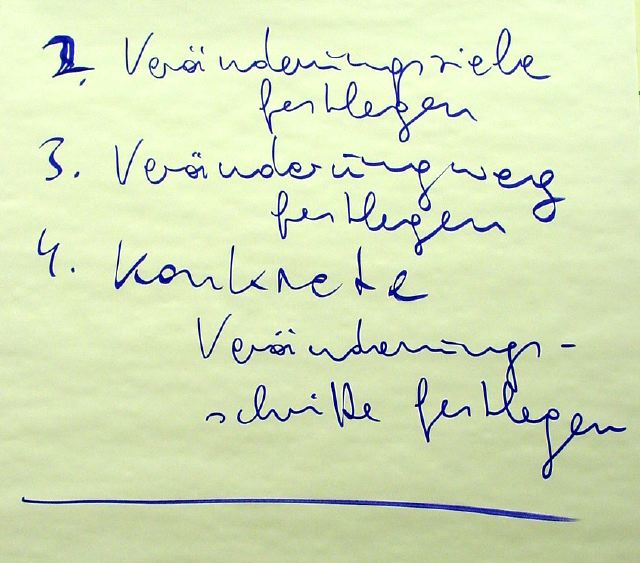 2. Veränderungsziele
festlegen
3. Veränderungweg
festlegen
4. Konkrete
Veränderungs-
schritte festlegen